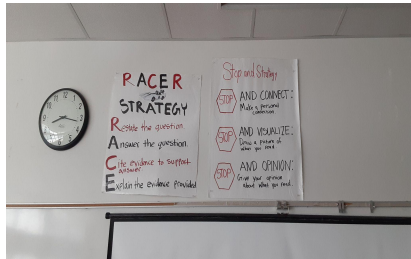 RACER
STRATEGY
Restate the question.
Answer the question.
Cite evidence to support
answer.
Explain the evidence provided
Stop and Strategy
STOP AND CONNECT:
Make a personal
connection.
STOP AND VISUALIZE:
Draw a picture of
what you read.
STOP AND OPINION:
Give your opinion
about what you read.